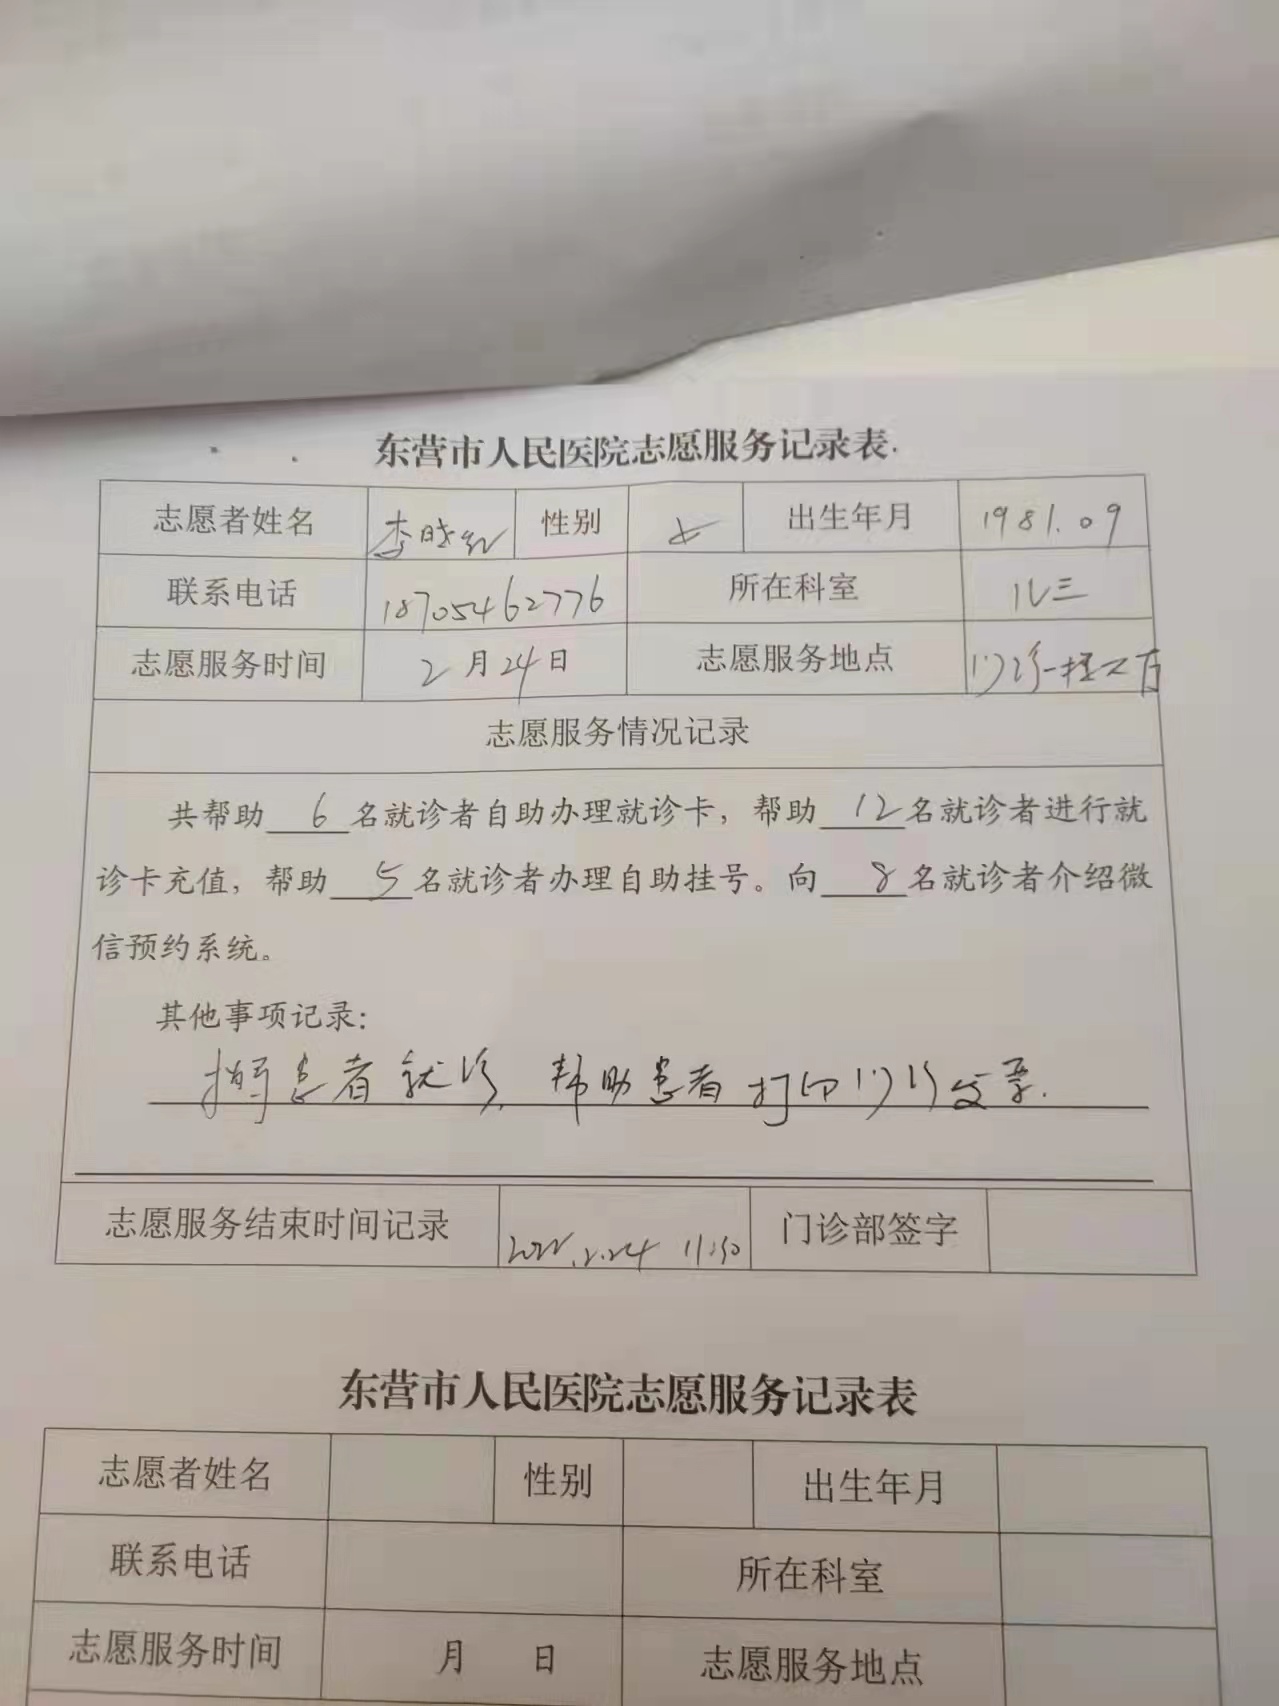 东营市人民医院志愿服务记录表
志愿者姓名 李晓红 性别 女 出生年月 1981.09
联系电话 18705462776 所在科室 儿三
志愿服务时间 2月24日 志愿服务地点 门诊一楼大厅
志愿服务情况记录
共帮助 6 名就诊者自助办理就诊卡，帮助 12 名就诊者进行就
诊卡充值，帮助 5 名就诊者办理自助挂号。向 8 名就诊者介绍微
信预约系统。
其他事项记录：
指导患者就诊，帮助患者打印门诊发票.
志愿服务结束时间记录 2022.2.24 11:30 门诊部签字
东营市人民医院志愿服务记录表
志愿者姓名 性别 出生年月
联系电话 所在科室
志愿服务时间 月 日 志愿服务地点